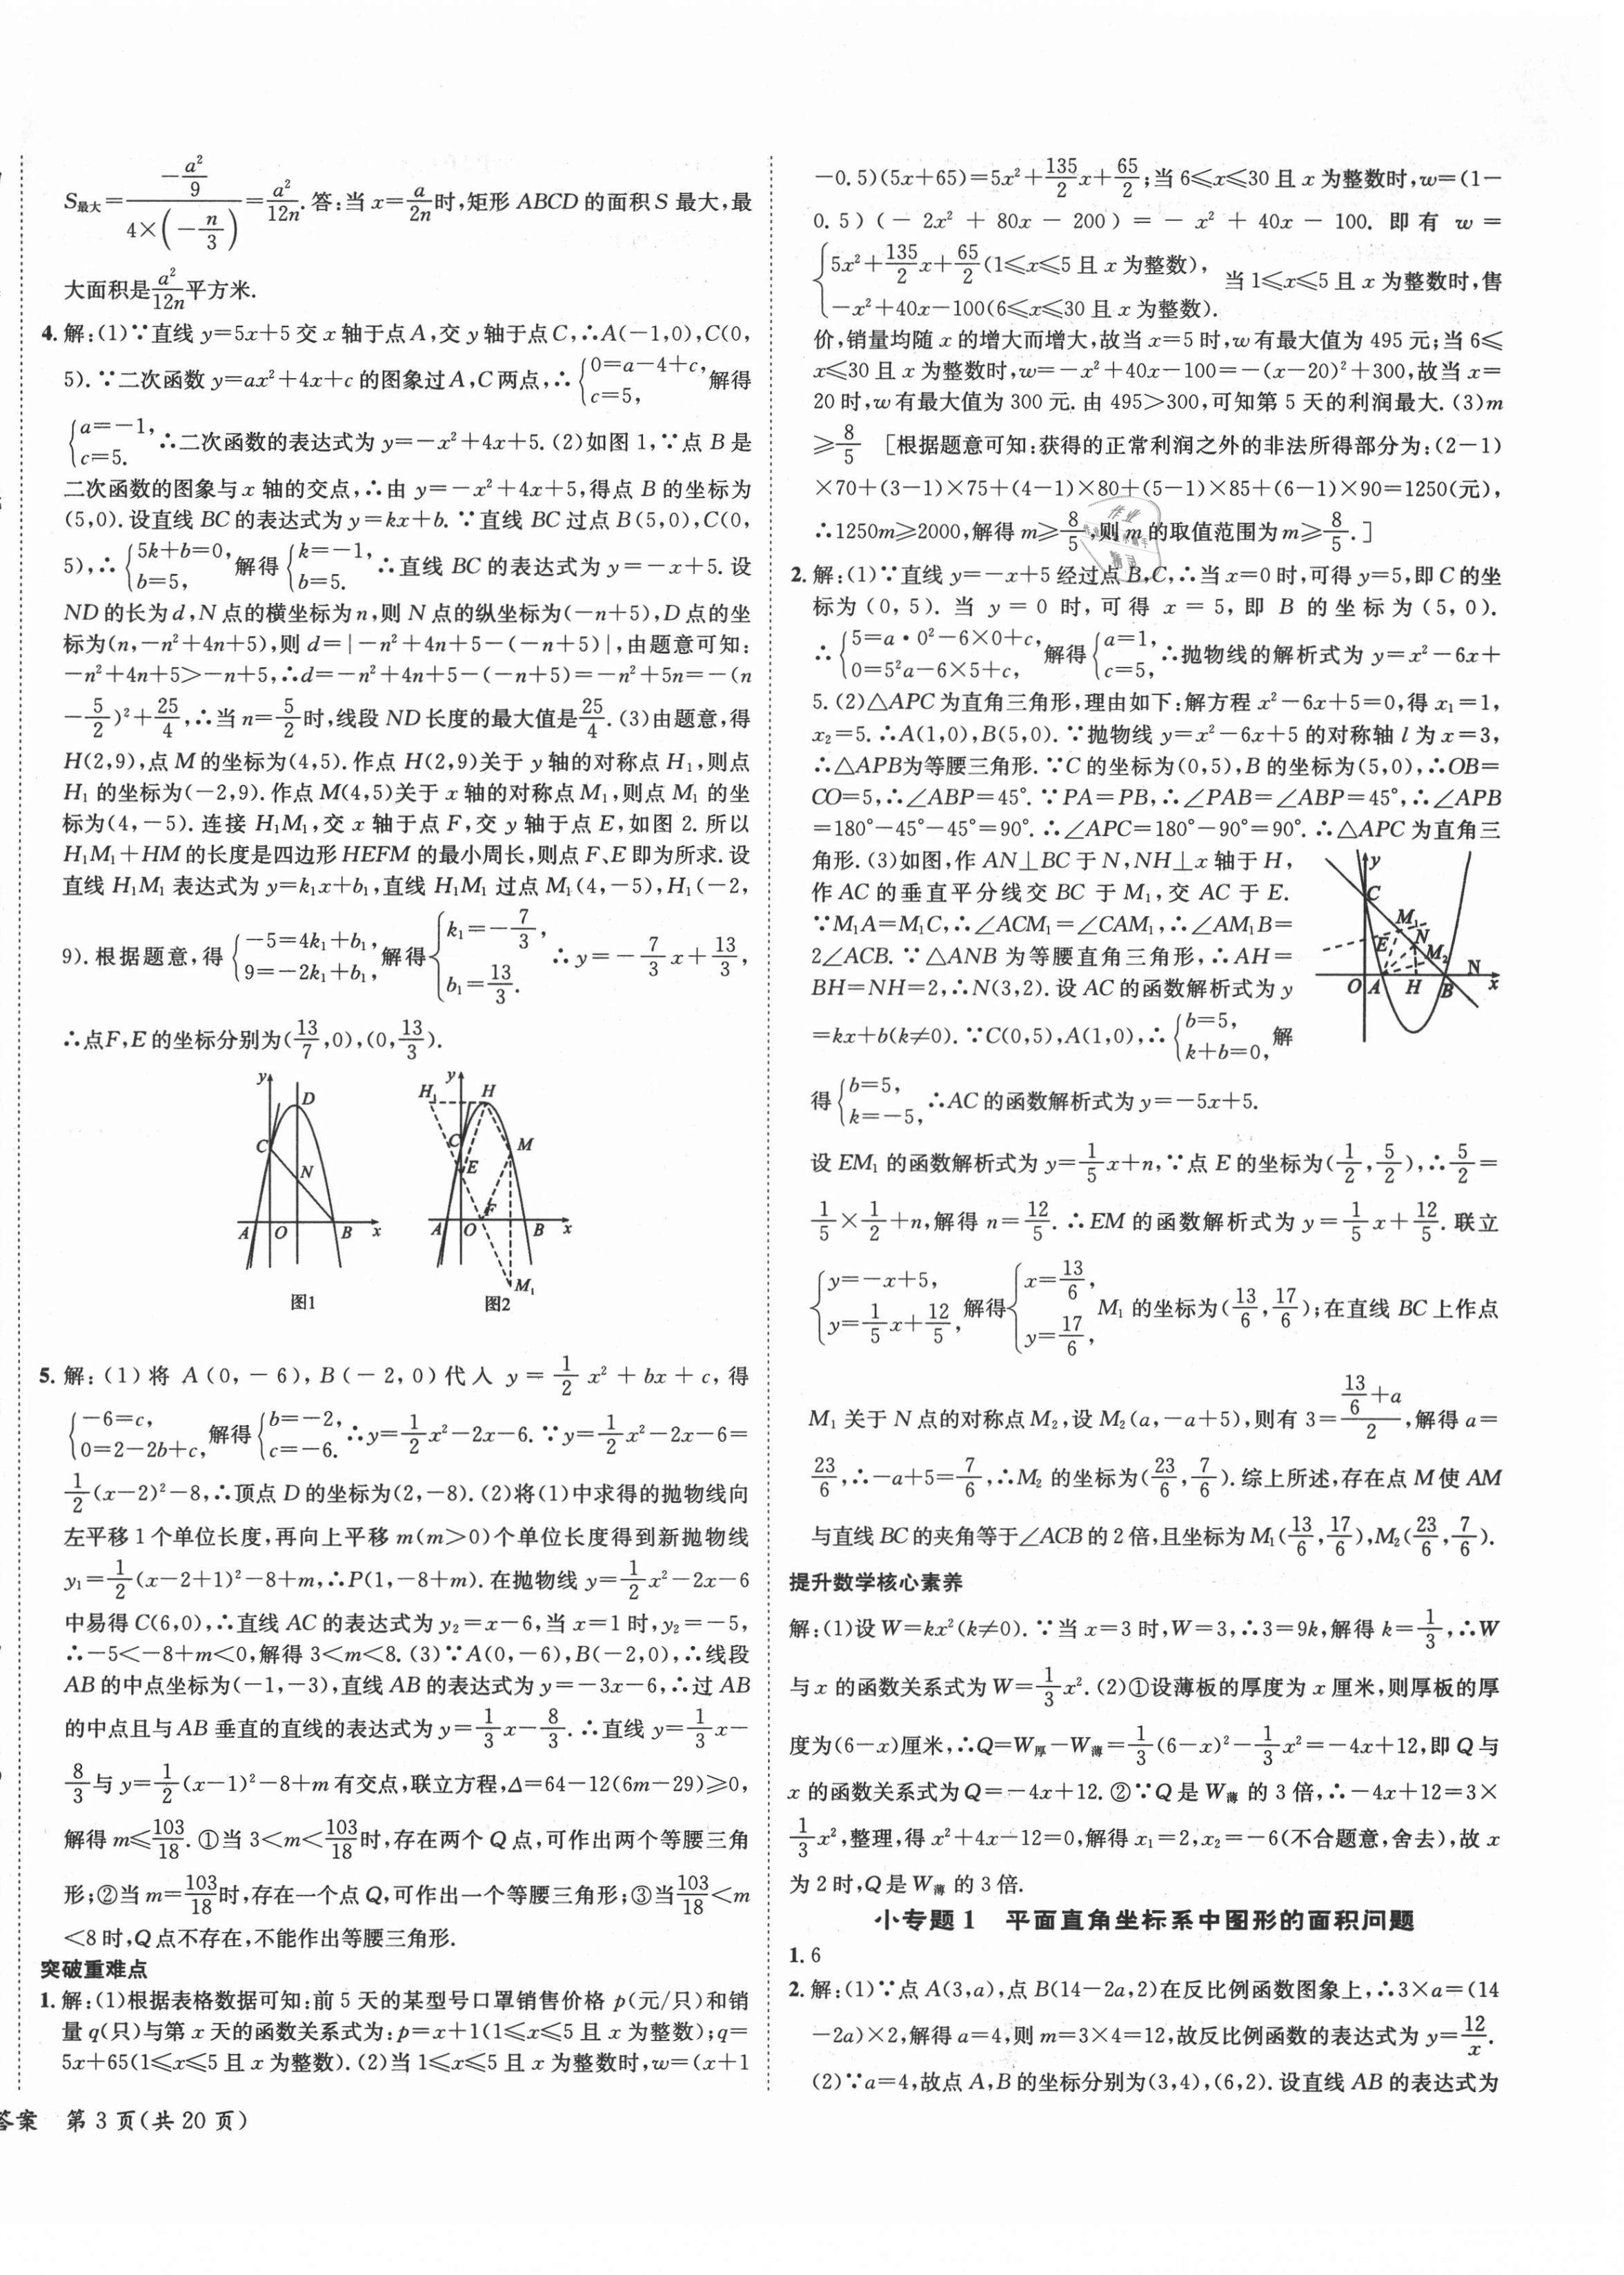 S最大=(-a²/9)/(4×(-n/3))=a²/12n.答:当x=a/2n时,矩形ABCD的面积S最大,最
大面积是a²/12n平方米.
4.解:(1)∵直线y=5x+5交x轴于点A,交y轴于点C,∴A(-1,0),C(0,
5).∵二次函数y=ax²+4x+c的图象过A,C两点,∴{0=a-4+c, c=5, 解得
{a=-1, c=5. ∴二次函数的表达式为y=-x²+4x+5.(2)如图1,∵点B是
二次函数的图象与x轴的交点,∴由y=-x²+4x+5,得点B的坐标为
(5,0).设直线BC的表达式为y=kx+b.∵直线BC过点B(5,0),C(0,
5),∴{5k+b=0, b=5, 解得{k=-1, b=5. ∴直线BC的表达式为y=-x+5.设
ND的长为d,N点的横坐标为n,则N点的纵坐标为(-n+5),D点的坐
标为(n,-n²+4n+5),则d=|-n²+4n+5-(-n+5)|,由题意可知:
-n²+4n+5>-n+5,∴d=-n²+4n+5-(-n+5)=-n²+5n=-(n
-5/2)²+25/4,∴当n=5/2时,线段ND长度的最大值是25/4.(3)由题意,得
H(2,9),点M的坐标为(4,5).作点H(2,9)关于y轴的对称点H₁,则点
H₁的坐标为(-2,9).作点M(4,5)关于x轴的对称点M₁,则点M₁的坐
标为(4,-5).连接H₁M₁,交x轴于点F,交y轴于点E,如图2.所以
H₁M₁+HM的长度是四边形HEFM的最小周长,则点F、E即为所求.设
直线H₁M₁表达式为y=k₁x+b₁,直线H₁M₁过点M₁(4,-5),H₁(-2,
9).根据题意,得{-5=4k₁+b₁, 9=-2k₁+b₁, 解得{k₁=-7/3, b₁=13/3. ∴y=-7/3x+13/3,
∴点F,E的坐标分别为(13/7,0),(0,13/3).
y D C N A O B x
图1
y H₁ H C M E F A O B x M₁
图2
5.解:(1)将A(0,-6),B(-2,0)代入y=1/2x²+bx+c,得
{-6=c, 0=2-2b+c, 解得{b=-2, c=-6. ∴y=1/2x²-2x-6.∵y=1/2x²-2x-6=
1/2(x-2)²-8,∴顶点D的坐标为(2,-8).(2)将(1)中求得的抛物线向
左平移1个单位长度,再向上平移m(m>0)个单位长度得到新抛物线
y₁=1/2(x-2+1)²-8+m,∴P(1,-8+m).在抛物线y=1/2x²-2x-6
中易得C(6,0),∴直线AC的表达式为y₂=x-6,当x=1时,y₂=-5,
∴-5<-8+m<0,解得3<m<8.(3)∵A(0,-6),B(-2,0),∴线段
AB的中点坐标为(-1,-3),直线AB的表达式为y=-3x-6,∴过AB
的中点且与AB垂直的直线的表达式为y=1/3x-8/3.∴直线y=1/3x-
8/3与y=1/2(x-1)²-8+m有交点,联立方程,Δ=64-12(6m-29)≥0,
解得m≤103/18.①当3<m<103/18时,存在两个Q点,可作出两个等腰三角
形;②当m=103/18时,存在一个点Q,可作出一个等腰三角形;③当103/18<m
<8时,Q点不存在,不能作出等腰三角形.
突破重难点
1.解:(1)根据表格数据可知:前5天的某型号口罩销售价格p(元/只)和销
量q(只)与第x天的函数关系式为:p=x+1(1≤x≤5且x为整数);q=
5x+65(1≤x≤5且x为整数).(2)当1≤x≤5且x为整数时,w=(x+1
答案 第3页(共20页)
-0.5)(5x+65)=5x²+135/2x+65/2;当6≤x≤30且x为整数时,w=(1-
0.5)(-2x²+80x-200)=-x²+40x-100.即有w=
{5x²+135/2x+65/2(1≤x≤5且x为整数), -x²+40x-100(6≤x≤30且x为整数). 当1≤x≤5且x为整数时,售
价,销量均随x的增大而增大,故当x=5时,w有最大值为495元;当6≤
x≤30且x为整数时,w=-x²+40x-100=-(x-20)²+300,故当x=
20时,w有最大值为300元.由495>300,可知第5天的利润最大.(3)m
≥8/5 [根据题意可知:获得的正常利润之外的非法所得部分为:(2-1)
×70+(3-1)×75+(4-1)×80+(5-1)×85+(6-1)×90=1250(元),
∴1250m≥2000,解得m≥8/5,则m的取值范围为m≥8/5.]
2.解:(1)∵直线y=-x+5经过点B,C,∴当x=0时,可得y=5,即C的坐
标为(0,5).当y=0时,可得x=5,即B的坐标为(5,0).
∴{5=a·0²-6×0+c, 0=5²a-6×5+c, 解得{a=1, c=5, ∴抛物线的解析式为y=x²-6x+
5.(2)△APC为直角三角形,理由如下:解方程x²-6x+5=0,得x₁=1,
x₂=5.∴A(1,0),B(5,0).∵抛物线y=x²-6x+5的对称轴l为x=3,
∴△APB为等腰三角形.∵C的坐标为(0,5),B的坐标为(5,0),∴OB=
CO=5,∴∠ABP=45°.∵PA=PB,∴∠PAB=∠ABP=45°,∴∠APB
=180°-45°-45°=90°.∴∠APC=180°-90°=90°.∴△APC为直角三
角形.(3)如图,作AN⊥BC于N,NH⊥x轴于H,
作AC的垂直平分线交BC于M₁,交AC于E.
∵M₁A=M₁C,∴∠ACM₁=∠CAM₁,∴∠AM₁B=
2∠ACB.∵△ANB为等腰直角三角形,∴AH=
BH=NH=2,∴N(3,2).设AC的函数解析式为y
=kx+b(k≠0).∵C(0,5),A(1,0),∴{b=5, k+b=0, 解
得{b=5, k=-5, ∴AC的函数解析式为y=-5x+5.
y C M₁ E N M₂ N O A H B x
设EM₁的函数解析式为y=1/5x+n,∵点E的坐标为(1/2,5/2),∴5/2=
1/5×1/2+n,解得n=12/5.∴EM的函数解析式为y=1/5x+12/5.联立
{y=-x+5, y=1/5x+12/5, 解得{x=13/6, y=17/6, M₁的坐标为(13/6,17/6);在直线BC上作点
M₁关于N点的对称点M₂,设M₂(a,-a+5),则有3=(13/6+a)/2,解得a=
23/6,∴-a+5=7/6,∴M₂的坐标为(23/6,7/6).综上所述,存在点M使AM
与直线BC的夹角等于∠ACB的2倍,且坐标为M₁(13/6,17/6),M₂(23/6,7/6).
提升数学核心素养
解:(1)设W=kx²(k≠0).∵当x=3时,W=3,∴3=9k,解得k=1/3,∴W
与x的函数关系式为W=1/3x².(2)①设薄板的厚度为x厘米,则厚板的厚
度为(6-x)厘米,∴Q=W厚-W薄=1/3(6-x)²-1/3x²=-4x+12,即Q与
x的函数关系式为Q=-4x+12.②∵Q是W薄的3倍,∴-4x+12=3×
1/3x²,整理,得x²+4x-12=0,解得x₁=2,x₂=-6(不合题意,舍去),故x
为2时,Q是W薄的3倍.
小专题1 平面直角坐标系中图形的面积问题
1.6
2.解:(1)∵点A(3,a),点B(14-2a,2)在反比例函数图象上,∴3×a=(14
-2a)×2,解得a=4,则m=3×4=12,故反比例函数的表达式为y=12/x.
(2)∵a=4,故点A,B的坐标分别为(3,4),(6,2).设直线AB的表达式为